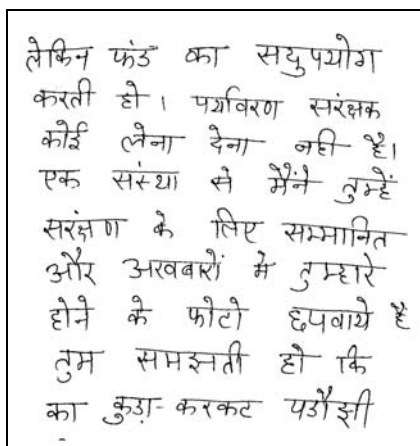 लेकिन फंड का सयुपयोग
करती हो । पर्यावरण सरंक्षक
कोई लेना देना नही है।
एक संस्था से मैंने तुम्हें
सरंक्षण के लिए सम्मानित
और अखबारों मे तुम्हारे
होने के फोटो छपवाये है
तुम समझती हो कि
का कुड़ा-करकट पडौझी